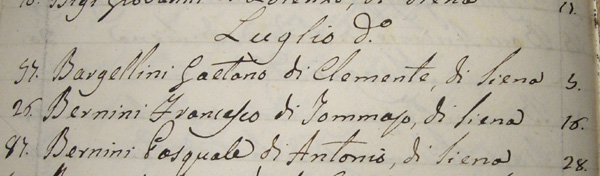 Luglio do.
57. Bargellini Gaetano di Clemente, di Siena 5.
26. Bernini Francesco di Tommaso, di Siena 16.
87. Bernini Pasquale di Antonio, di Siena 28.